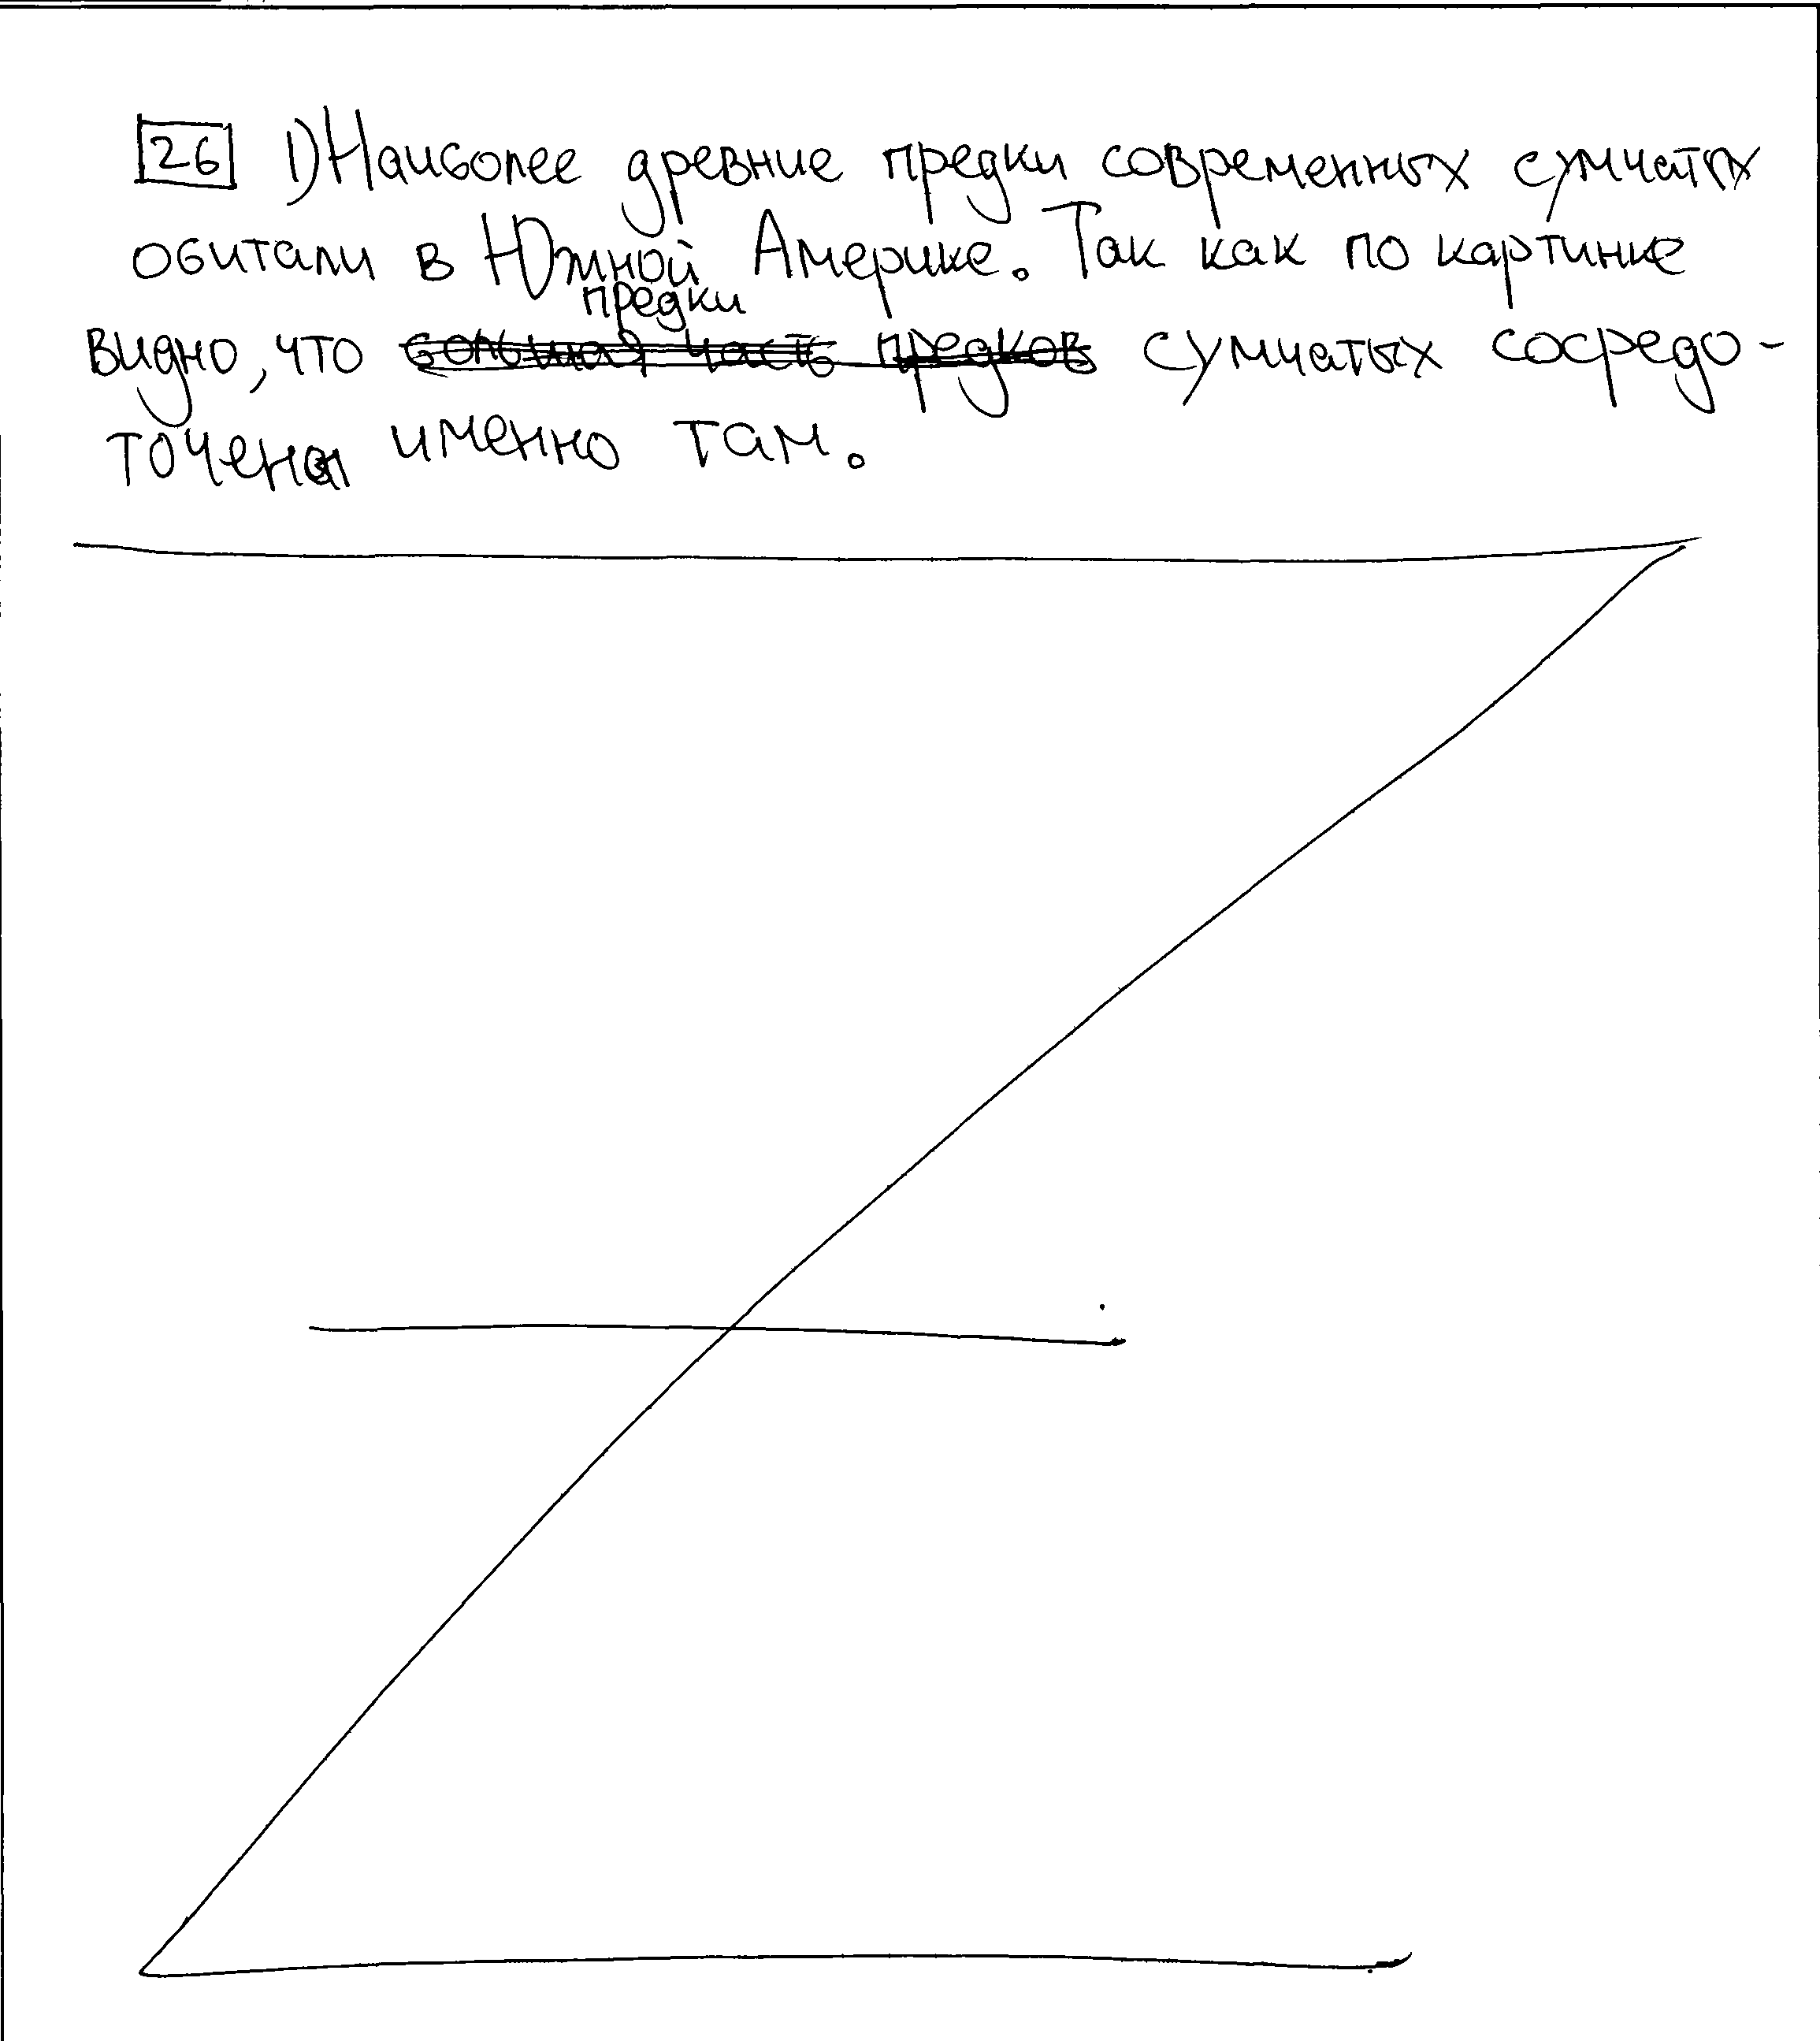 26 1) Наиболее древние предки современных сумчатых
обитали в Южной Америке. Так как по картинке
предки
видно, что большая часть предков сумчатых сосредо-
точены именно там.